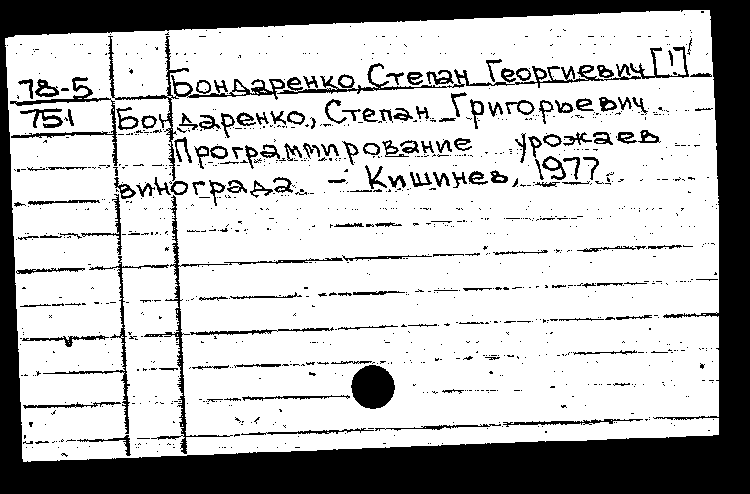 78-5 Бондаренко, Степан Георгиевич [!]
751 Бондаренко, Степан Григорьевич.
Программирование урожаев
винограда. – Кишинев, 1977.